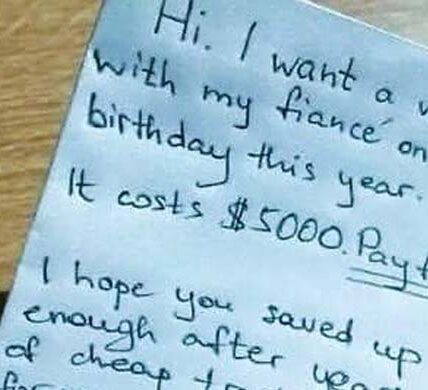 Hi. I want a
with my fiancé on
birthday this year.
It costs $5000. Pay
I hope you saved up
enough after
of cheap